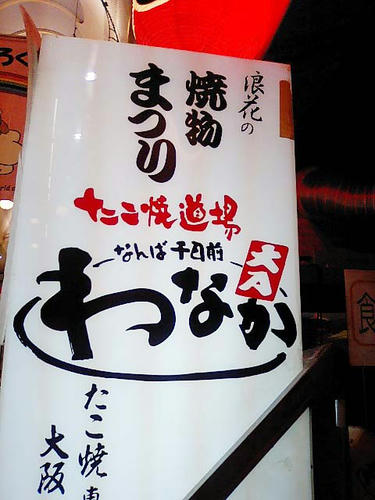 浪花の
焼物
まつり
たこ焼道場
なんば千日前
わなか
大入
たこ焼
大阪
ろく
食